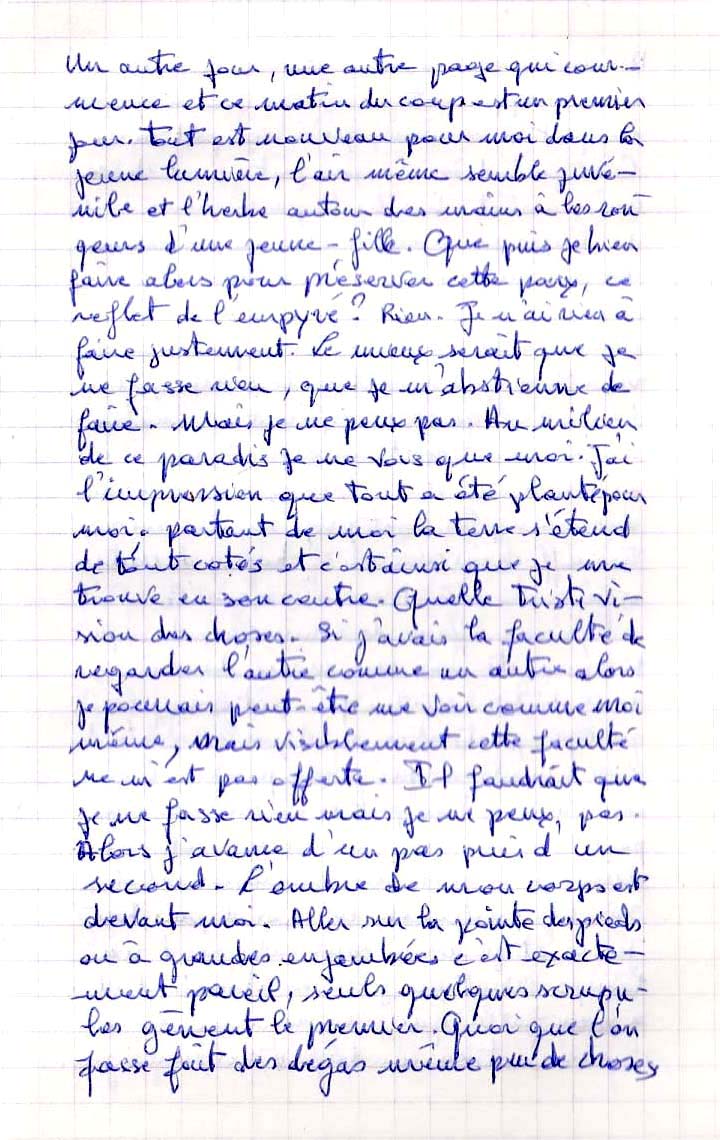 Un autre jour, une autre page qui com-
mence et ce matin du coup est un premier
jour. tout est nouveau pour moi dans la
jeune lumière, l'air même semble juvé-
nile et l'herbe autour des mains a les rou
geurs d'une jeune-fille. Que puis je bien
faire alors pour préserver cette paix, ce
reflet de l'empyré? Rien. Je n'ai rien à
faire justement. Le mieux serait que je
ne fasse rien, que je m'abstienne de
faire. Mais je ne peux pas. Au milieu
de ce paradis je ne vois que moi. J'ai
l'impression que tout a été planté pour
moi. partant de moi la terre s'étend
de tout cotés et c'est ainsi que je me
trouve en son centre. Quelle triste vi-
sion des choses. Si j'avais la faculté de
regarder l'autre comme un autre alors
je pourrais peut-être me voir comme moi
même, mais visiblement cette faculté
ne m'est pas offerte. Il faudrait que
je ne fasse rien mais je ne peux pas.
Alors j'avance d'un pas puis d'un
second. L'ombre de mon corps est
devant moi. Aller sur la pointe des pieds
ou à grandes enjambées c'est exacte-
ment pareil, seuls quelques scrupu-
les gênent le premier. Quoi que l'on
fasse fait des dégas même peu de choses